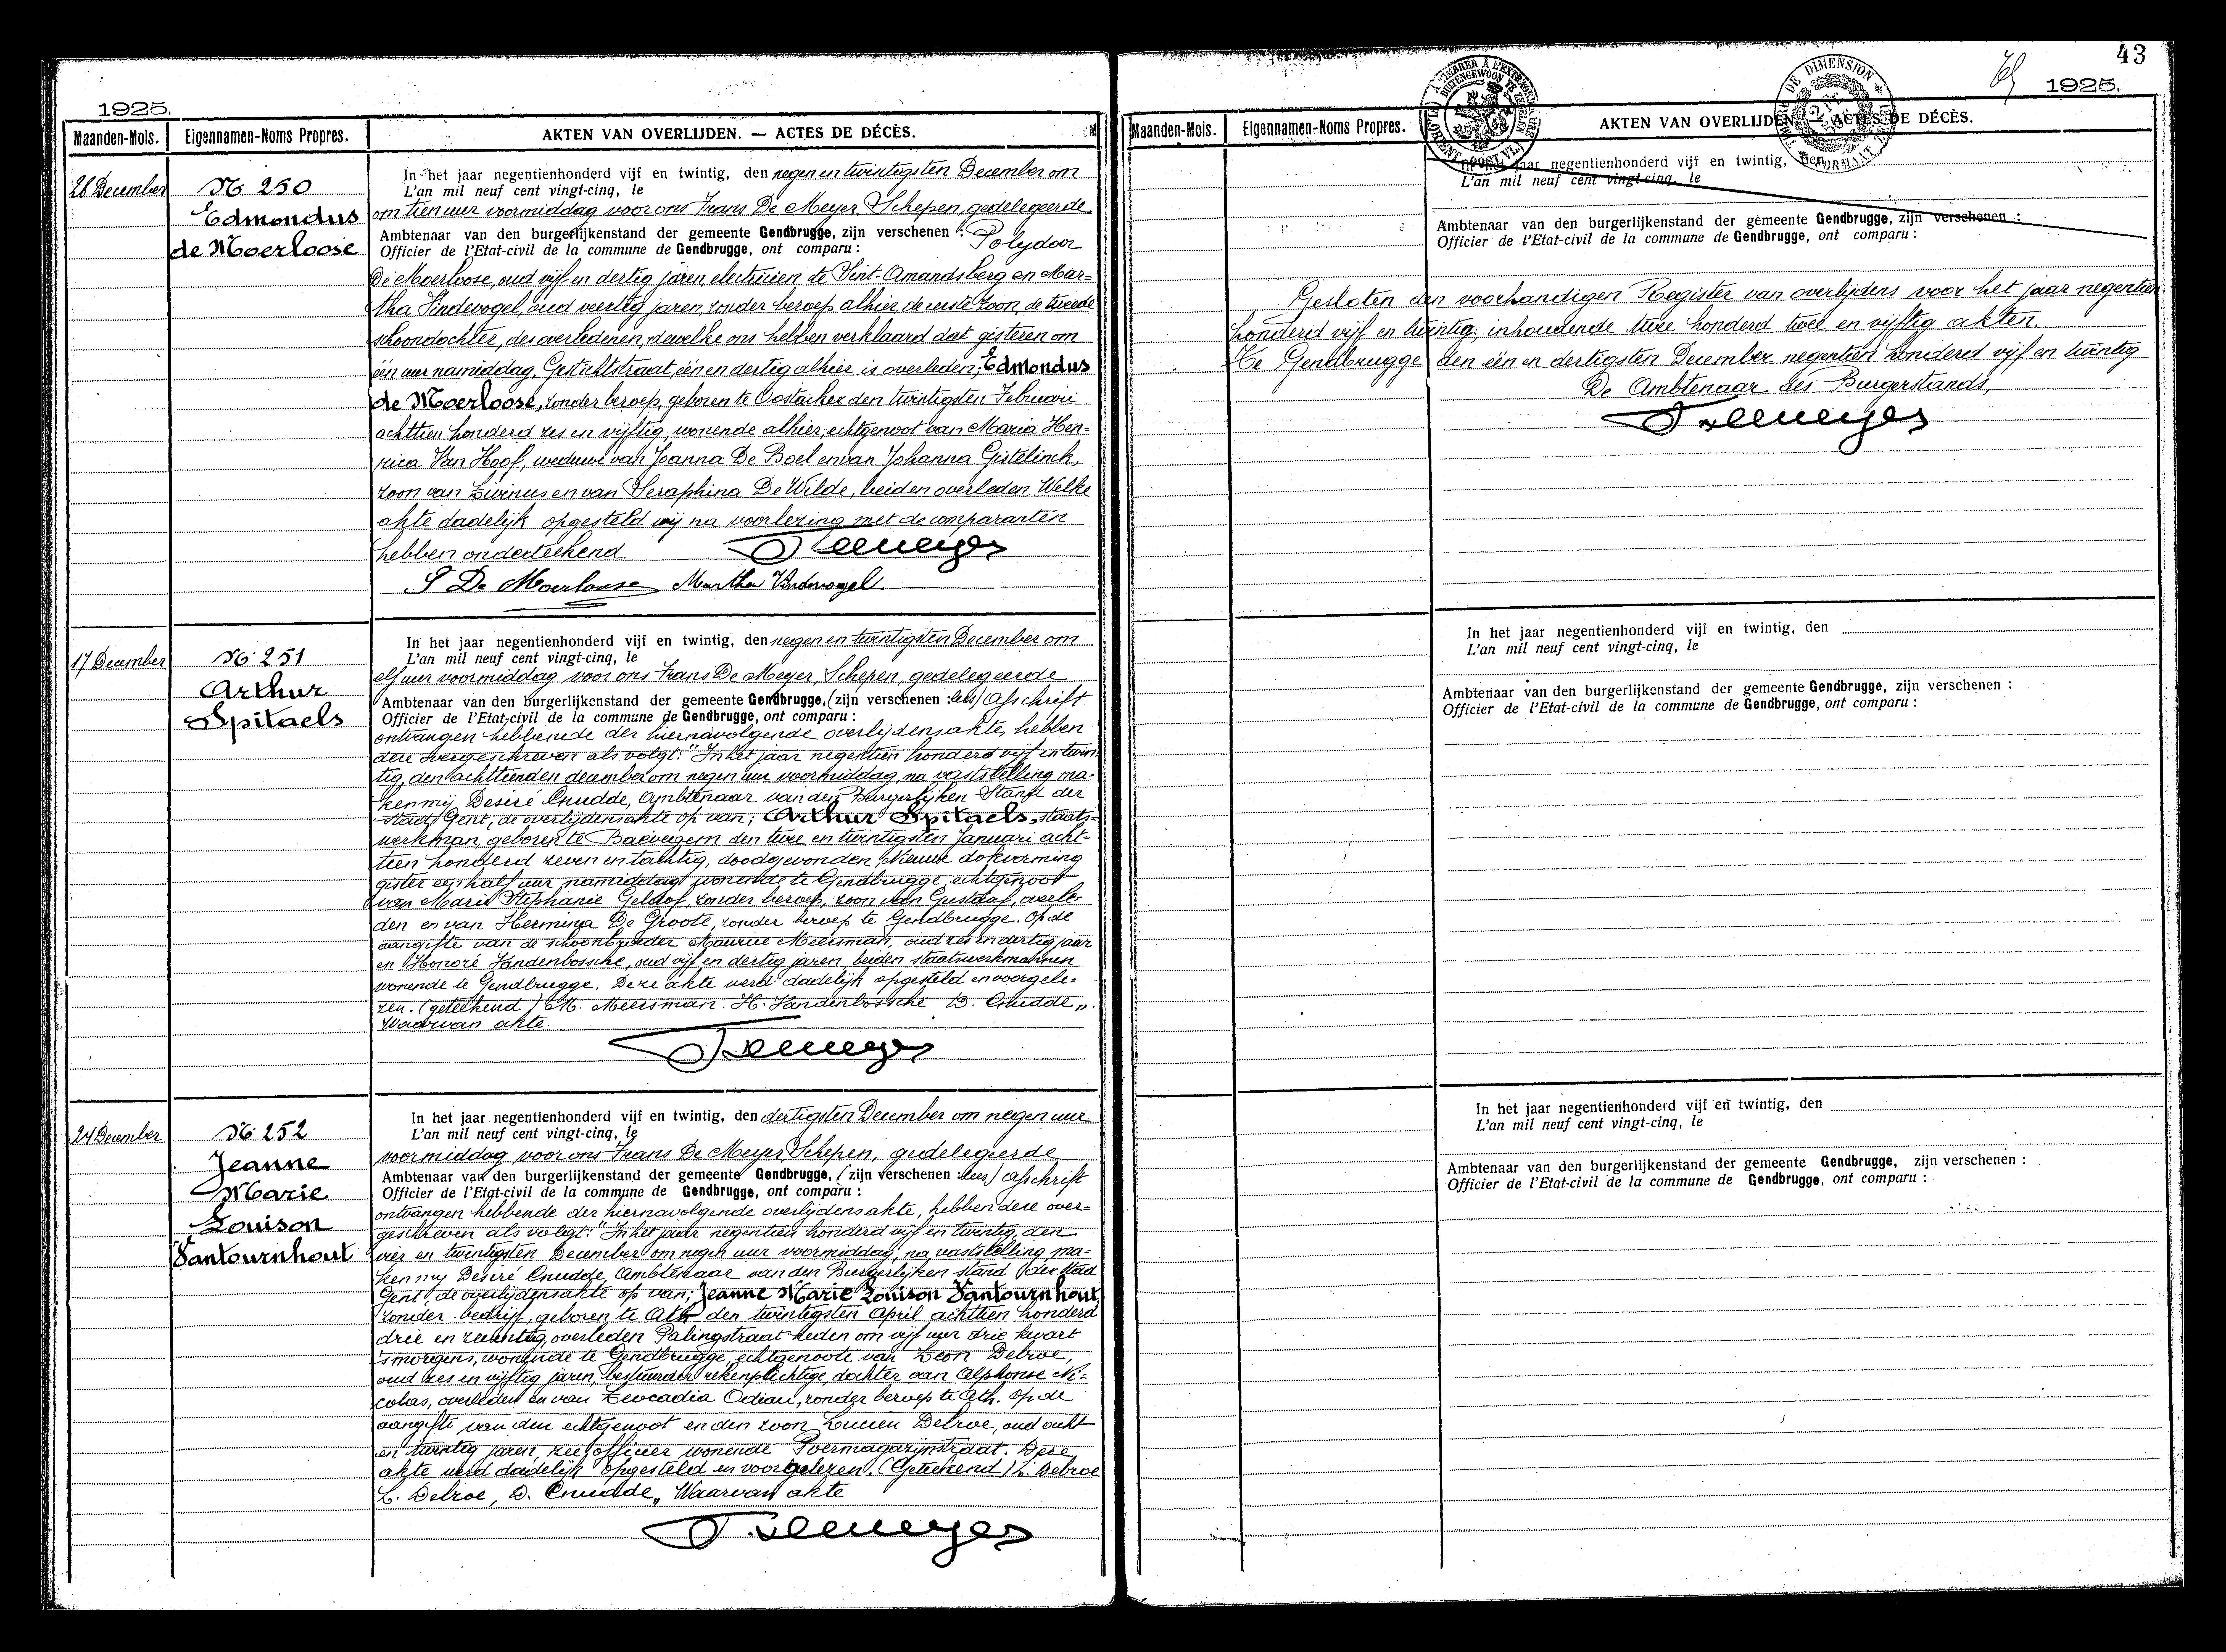 1925.
Maanden-Mois. Eigennamen-Noms Propres. AKTEN VAN OVERLIJDEN. — ACTES DE DÉCÈS.
28 December
No 250
Edmondus
de Moerloose
In het jaar negentienhonderd vijf en twintig, den negen en twintigsten December om
L'an mil neuf cent vingt-cinq, le
om tien uur voormiddag voor ons Frans De Meyer, Schepen, gedelegeerde
Ambtenaar van den burgerlijkenstand der gemeente Gendbrugge, zijn verschenen : Polydoor
Officier de l'Etat-civil de la commune de Gendbrugge, ont comparu :
De Moerloose, oud vijf en dertig jaren, electricien te Sint-Amandsberg en Mar=
tha Vindevogel, oud veertig jaren, zonder beroep alhier, de eerste zoon, de tweede
schoondochter, des overledenen, dewelke ons hebben verklaard dat gisteren om
één uur namiddag, Gestichtstraat, één en dertig alhier is overleden; Edmondus
de Moerloose, zonder beroep, geboren te Oostacker den twintigsten Februari
achttien honderd zes en vijftig, wonende alhier, echtgenoot van Maria Hen=
rica Van Hoof, weduwe van Joanna De Boel en van Johanna Gistelinck,
zoon van Livinus en van Seraphina De Wilde, beiden overleden. Welke
akte dadelijk opgesteld wij na voorlezing met de comparanten
hebben onderteekend.
F. Demeyer
P De Moerloose Martha Vindevogel.
17 December
No 251
Arthur
Spitaels
In het jaar negentienhonderd vijf en twintig, den negen en twintigsten December om
L'an mil neuf cent vingt-cinq, le
elf uur voormiddag voor ons Frans De Meyer, Schepen, gedelegeerde
Ambtenaar van den burgerlijkenstand der gemeente Gendbrugge, (zijn verschenen : lees) afschrift
Officier de l'Etat-civil de la commune de Gendbrugge, ont comparu :
ontvangen hebbende der hiernavolgende overlijdensakte, hebben
deze overgeschreven als volgt: "In het jaar negentien honderd vijf en twin
tig, den achttienden december om negen uur voormiddag, na vaststelling ma=
ken mij Desiré Cnudde, Ambtenaar van den Burgerlijken Stand der
Stad Gent, de overlijdensakte op van; Arthur Spitaels, staats=
werkman, geboren te Baevegem den twee en twintigsten Januari acht=
tien honderd zeven en tachtig, doodgevonden Nieuwe dokvorming
gister een half uur namiddag wonende te Gendbrugge, echtgenoot
van Marie Stephanie Geldof, zonder beroep, zoon van Gustaaf, overle=
den en van Hermina De Groote, zonder beroep te Gendbrugge. Op de
aangifte van de schoonbroeder Maurice Meersman, oud zes en dertig jaar
en Honoré Vandenbossche, oud vijf en dertig jaren, beiden staatswerkmannen
wonende te Gendbrugge. Deze akte werd dadelijk opgesteld en voorgele=
zen. (geteekend) M. Meersman. H. Vandenbossche D. Cnudde„.
Waarvan akte.
F. Demeyer
24 December
No 252
Jeanne
Marie
Louison
Vantournhout
In het jaar negentienhonderd vijf en twintig, den dertigsten December om negen uur
L'an mil neuf cent vingt-cinq, le
voormiddag voor ons Frans De Meyer, Schepen, gedelegeerde
Ambtenaar van den burgerlijkenstand der gemeente Gendbrugge, (zijn verschenen : lees) afschrift
Officier de l'Etat-civil de la commune de Gendbrugge, ont comparu :
ontvangen hebbende der hiernavolgende overlijdensakte, hebben deze over=
geschreven als volgt: "In het jaar negentien honderd vijf en twintig, den
vier en twintigsten December om negen uur voormiddag, na vaststelling ma=
ken mij Desiré Cnudde, Ambtenaar van den Burgerlijken stand der Stad
Gent de overlijdensakte op van; Jeanne Marie Louison Vantournhout
zonder bedrijf, geboren te Ath den twintigsten April achttien honderd
drie en zeventig, overleden Palingstraat heden om vijf uur drie kwart
'smorgens, wonende te Gendbrugge, echtgenoote van Leon Delroe,
oud zes en vijftig jaren, bestuurder rekenplichtige, dochter van Alphonse Ni=
colas, overleden en van Leocadia Odiau, zonder beroep te Ath. Op de
aangifte van den echtgenoot en den zoon Lucien Delroe, oud acht
en twintig jaren, zee officier wonende Poermagazijnstraat. Deze
akte werd dadelijk opgesteld en voorgelezen. (Geteekend) L. Delroe
L. Delroe, D. Cnudde„ Waarvan akte
F. Demeyer
43
1925.
Maanden-Mois. Eigennamen-Noms Propres. AKTEN VAN OVERLIJDEN. — ACTES DE DÉCÈS.
In het jaar negentienhonderd vijf en twintig, den
L'an mil neuf cent vingt-cinq, le
Ambtenaar van den burgerlijkenstand der gemeente Gendbrugge, zijn verschenen :
Officier de l'Etat-civil de la commune de Gendbrugge, ont comparu :
Gesloten den voorhandigen Register van overlijdens voor het jaar negentien
honderd vijf en twintig, inhoudende twee honderd twee en vijftig akten.
Te Gendbrugge den één en dertigsten December negentien honderd vijf en twintig
De Ambtenaar des Burgerstands,
F. Demeyer
In het jaar negentienhonderd vijf en twintig, den
L'an mil neuf cent vingt-cinq, le
Ambtenaar van den burgerlijkenstand der gemeente Gendbrugge, zijn verschenen :
Officier de l'Etat-civil de la commune de Gendbrugge, ont comparu :
In het jaar negentienhonderd vijf en twintig, den
L'an mil neuf cent vingt-cinq, le
Ambtenaar van den burgerlijkenstand der gemeente Gendbrugge, zijn verschenen :
Officier de l'Etat-civil de la commune de Gendbrugge, ont comparu :